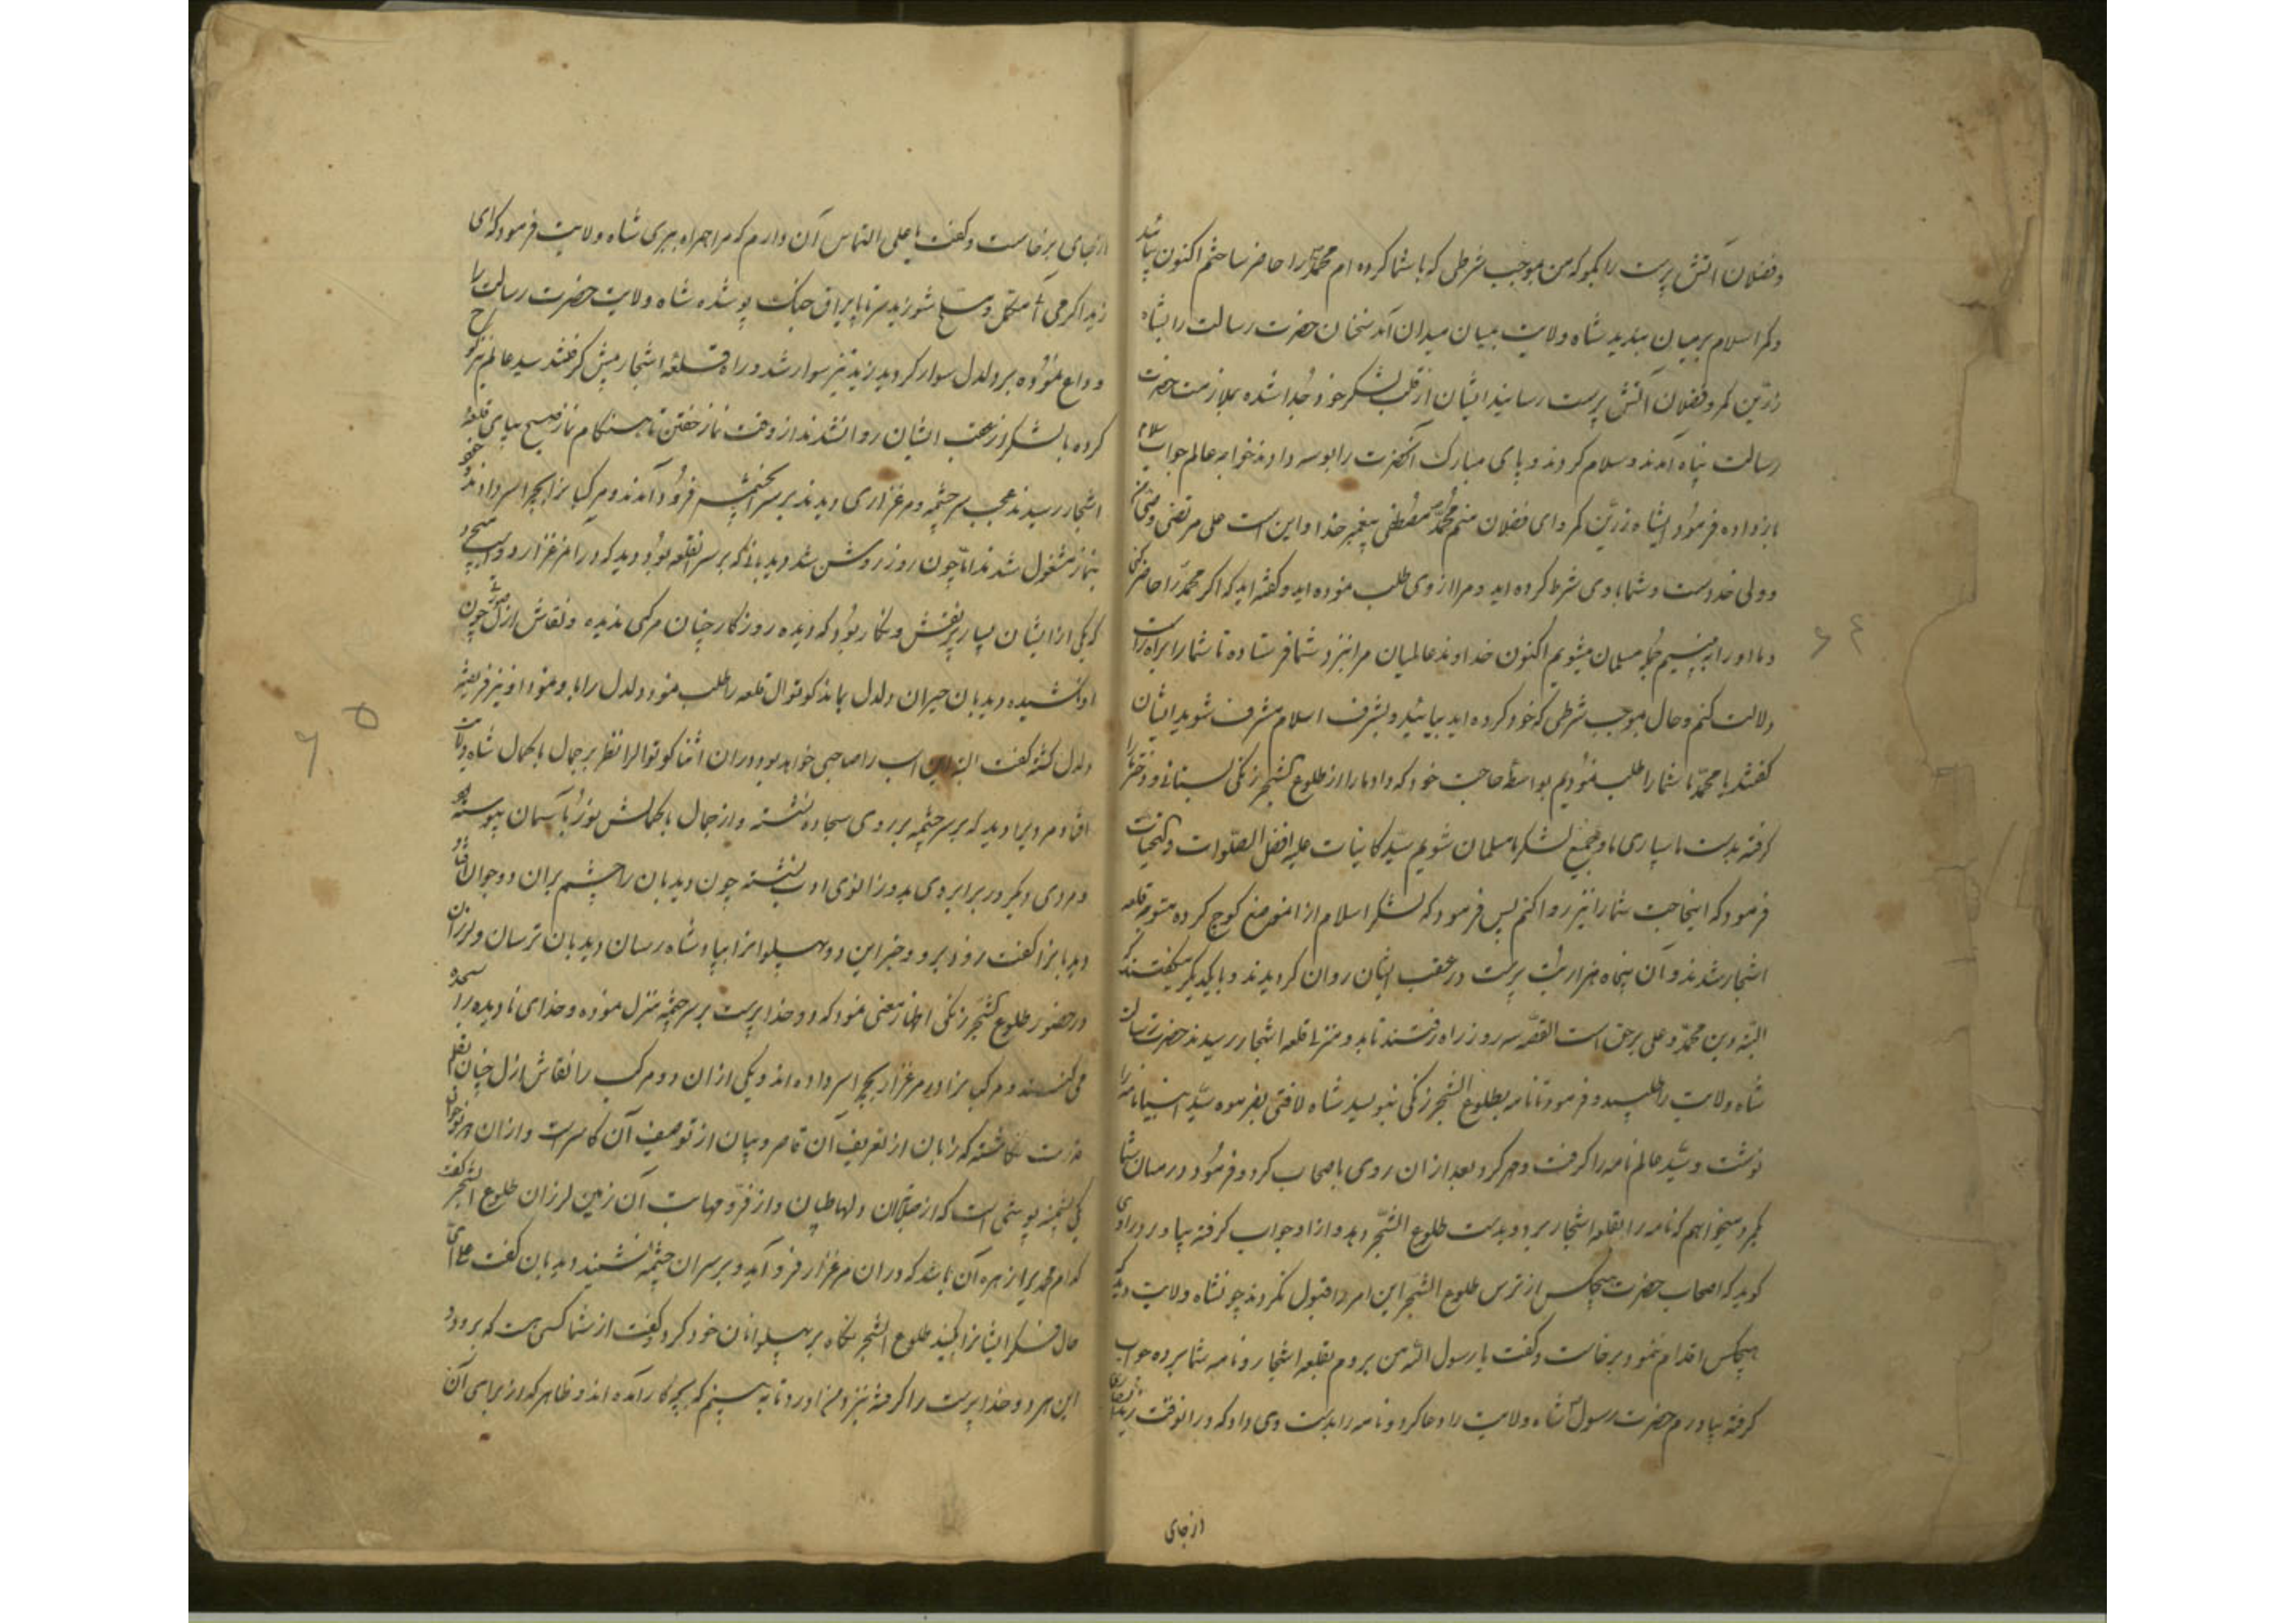 وفضلان آتش پرست را بگو که من بموجب شرطی که با شما کرده ام محمد را حاضر ساختم اکنون بیائید
وکمر اسلام بر میان ببندید شاه ولایت بمیان میدان آمد سخنان حضرت رسالت را بشاه
زرّین کمر وفضلان آتش پرست رسانید ایشان از قلب لشکر خود جُدا شده بملازمت حضرت
رسالت پناه آمدند وسلام کردند و پای مبارک آنحضرت را بوسه دادند خواجه عالم جواب سلام
باز داده فرمود ایشاه زرّین کمر و ای فضلان منم محمّد مصطفی پیغمبر خدا و این است علی مرتضی
و ولی خداست و شما با وی شرط کرده اید و مرا از وی طلب نموده اید و گفته اید که اگر محمد را حاضر کنی
و ما او را به بینیم مسلمان میشویم اکنون خداوند عالمیان مرا بنزد شما فرستاده تا شما را براه راست
دلالت کنم و حال بموجب شرطی که خود کرده اید بیائید و بشرف اسلام مشرف شوید ایشان
گفتند یا محمّد ما شما را طلب نمودیم بواسطهٔ حاجت خود که داد ما را از طلوع الشجر زنگی بستانی و دختر را
گرفته بدست ما سپاری ما و جمیع لشکر ما مسلمان شویم سیّد کاینات علیه افضل الصّلوات والتحیات
فرمود که اینحاجت شما را نیز روا کنم پس فرمود که لشکر اسلام از انموضع کوچ کرده متوجه قلعه
اشجار شدند و آن پنجاه هزار بت پرست در عقب ایشان روان گردیدند و با یکدیگر میگفتند که
البته دین محمّد و علی بر حق است القصّه سه روز راه رفتند تا بدو منزل قلعه اشجار رسیدند حضرت رسالت
شاه ولایت را طلبید و فرمود تا نامه بطلوع الشجر زنگی بنویسد شاه لافتی بفرموده سیّد انبیا نامه را
نوشت و سیّد عالم نامه را گرفت و مهر کرد بعد از ان روی باصحاب کرد و فرمود در میان شما
مرد میخواهم که نامه را بقلعه اشجار برد و بدست طلوع الشجر دهد و از او جواب گرفته بیاورد راوی
گوید که اصحاب حضرت هیچکس از ترس طلوع الشجر این امر را قبول نکردند چون شاه ولایت دید که
هیچکس اقدام ننمود برخاست و گفت یا رسول الله من بروم بقلعه اشجار و نامه شما برده جواب
گرفته بیاورم حضرت رسول شاه ولایت را دعا کرد و نامه را بدست وی داد که در انوقت زید
از جای
از جای برخاست و گفت یا علی التماس آن دارم که مرا همراه ببری شاه ولایت فرمود که ای
زید اگر می آئی مکمّل و مسلح شو زید سرتاپا یراق جنگ پوشیده شاه ولایت حضرت رسالت را
وداع نموده بر دلدل سوار گردید زید نیز سوار شد و راه قلعهٔ اشجار پیش گرفتند سید عالم نیز کوچ
کرده با لشکر در عقب ایشان روان شدند از وقت نماز خفتن تا هنگام نماز صبح بپای قلعهٔ
اشجار رسیدند عجب سرچشمه و مرغزاری دیدند بر سر آنچشمه فرود آمدند و مرکبانرا بچرا سر دادند و خود
بنماز مشغول شدند امّا چون روز روشن شد دیدبانی که بر سر انقلعه بود دید که در آن مرغزار دو اسب میچرد
که یکی از ایشان بسیار پر نقش و نگار بود که دیده روزگار چنان مرکبی ندیده و نقاش ازل صورتی چون
او نکشیده دیدبان حیران دلدل بماند کوتوال قلعه را طلب نمود دلدل را باو نمود او نیز فریفته
دلدل گشته گفت البته این اسب را صاحبی خواهد بود در ان اثنا کوتوال را نظر بر جمال با کمال شاه ولایت
افتاد مردیرا دید که بر سر چشمه بر روی سجاده نشسته و از جمال با کمالش نور بآسمان پیوسته بود
و مردی دیگر در برابر وی بدو زانوی ادب نشسته چون دیدبان را چشم بران دو جوان افتاد
دیدبانرا گفت زود برو و خبر این دو پهلوانرا بپادشاه رسان دیدبان ترسان و لرزان
در حضور طلوع الشجر زنگی اظهار معنی نمود که دو خداپرست بر سر چشمه منزل نموده و خدای نادیده را سجده
می کنند و مرکبانرا در مرغزار بچرا سر داده اند و یکی از ان دو مرکب را نقاش ازل چنان بقلم
قدرت نگاشته که زبان از تعریف آن قاصر و بیان از توصیف آن کاسر است و از ان هر دو جوان
یکی پشمینه پوشی است که از صلابتش دلها طپان و از فرّ و مهابت آن زمین لرزان طلوع الشجر گفت
کدام محمدیرا زهره آن باشد که در ان مرغزار فرود آید و بر سر ان چشمه نشیند دیدبان گفت علی ای
حال فکر ایشانرا بکنید طلوع الشجر نگاه بر پهلوانان خود کرد و گفت از شما کسی هست که برود و
این هر دو خداپرست را گرفته بنزد من آورد تا به بینم که بچه کار آمده اند و ظاهر که از برای آن